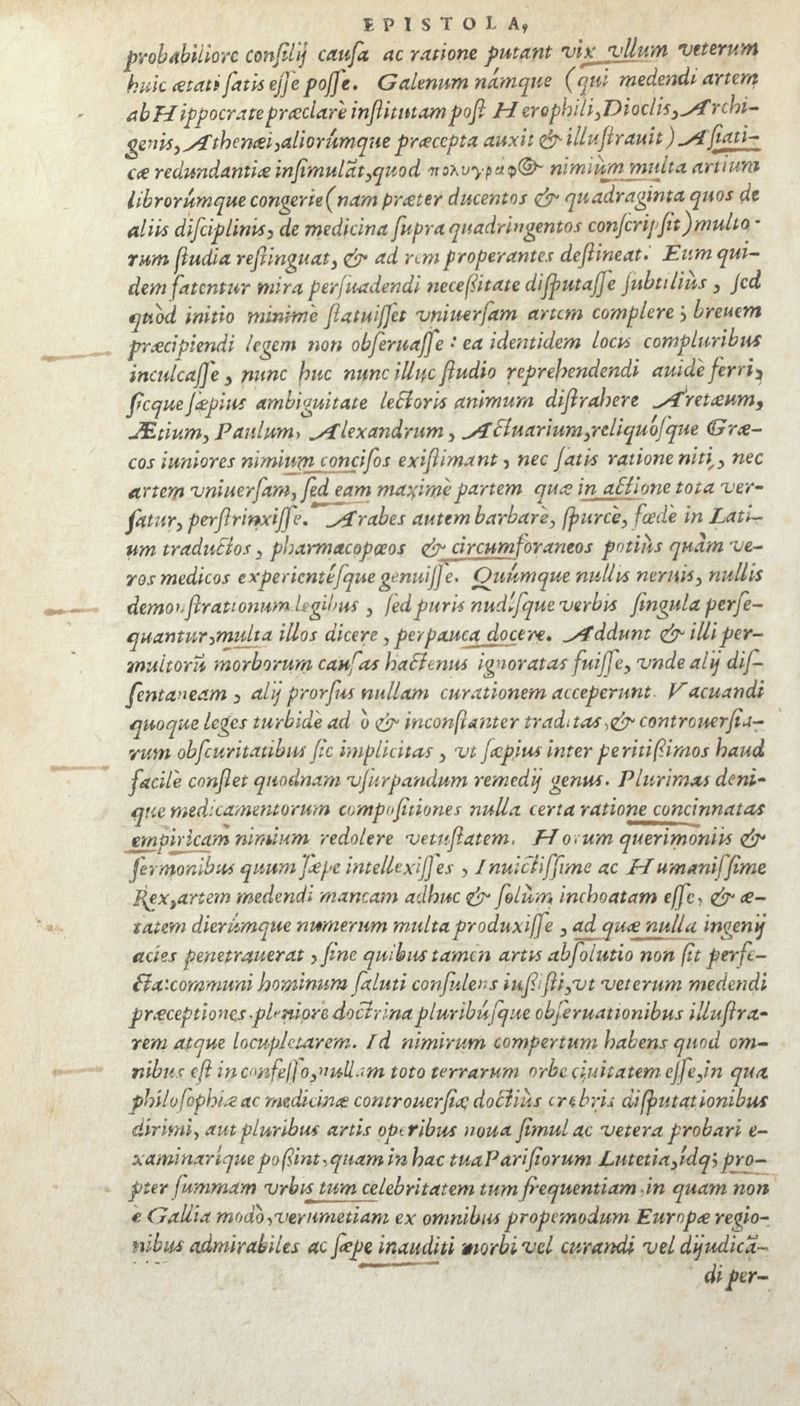 EPISTOLA,
probabiliore consilij causa ac ratione putant vix vllum veterum
huic ætati satis esse posse. Galenum námque (qui medendi artem
ab Hippocrate præclarè institutam post Herophili, Dioclis, Archi-
genis, Athenæi, aliorúmque præcepta auxit & illustrauit) Asiati-
cæ redundantiæ insimulãt, quod πολυγράφος nimiùm multa artium
librorúmque congerie (nam præter ducentos & quadraginta quos de
aliis disciplinis, de medicina supra quadringentos conscripsit) multo-
rum studia restinguat, & ad rem properantes destineat. Eum qui-
dem fatentur mira persuadendi necessitate disputasse subtiliùs, sed
quòd initio minimè statuisset vniuersam artem complere; breuem
præcipiendi legem non obseruasse: ea identidem locis compluribus
inculcasse, nunc huc nunc illuc studio reprehendendi auidè ferri,
sicque sæpius ambiguitate lectoris animum distrahere. Aretæum,
Ætium, Paulum, Alexandrum, Actuarium, reliquósque Græ-
cos iuniores nimium concisos existimant, nec satis ratione niti, nec
artem vniuersam, sed eam maximè partem quæ in actione tota ver-
satur, perstrinxisse. Arabes autem barbarè, spurcè, fœdè in Lati-
um traductos, pharmacopœos & circumforaneos potiùs quàm ve-
ros medicos experientésque genuisse. Quúmque nullis neruis, nullis
demonstrationum legibus, sed puris nudísque verbis singula perse-
quantur, multa illos dicere, perpauca docere. Addunt & illi per-
multorũ morborum causas hactenus ignoratas fuisse, vnde alij dis-
sentaneam, alij prorsus nullam curationem acceperunt. Vacuandi
quoque leges turbidè adeò & inconstanter traditas, & controuersia-
rum obscuritatibus sic implicitas, vt sæpius inter peritissimos haud
facilè constet quodnam vsurpandum remedij genus. Plurimas deni-
que medicamentorum compositiones nulla certa ratione concinnatas
empiricam nimium redolere vetustatem. Horum querimoniis &
sermonibus quum sæpe intellexisses, Inuictissime ac Humanissime
Rex, artem medendi mancam adhuc & solùm inchoatam esse, & æ-
tatem dierúmque numerum multa produxisse, ad quæ nulla ingenij
acies penetrauerat, sine quibus tamen artis absolutio non sit perfe-
cta: communi hominum saluti consulens iussisti, vt veterum medendi
præceptiones pleniore doctrina pluribúsque obseruationibus illustra-
rem atque locupletarem. Id nimirum compertum habens quod om-
nibus est in confesso, nullam toto terrarum orbe ciuitatem esse, in qua
philosophiæ ac medicinæ controuersiæ doctiùs crebris disputationibus
dirimi, aut pluribus artis operibus noua simul ac vetera probari e-
xaminaríque possint, quam in hac tua Parisiorum Lutetia, idq; pro-
pter summam vrbis tum celebritatem tum frequentiam, in quam non
e Gallia modò, verumetiam ex omnibus propemodum Europæ regio-
nibus admirabiles ac sæpe inauditi morbi vel curandi vel dijudicã-
di per-